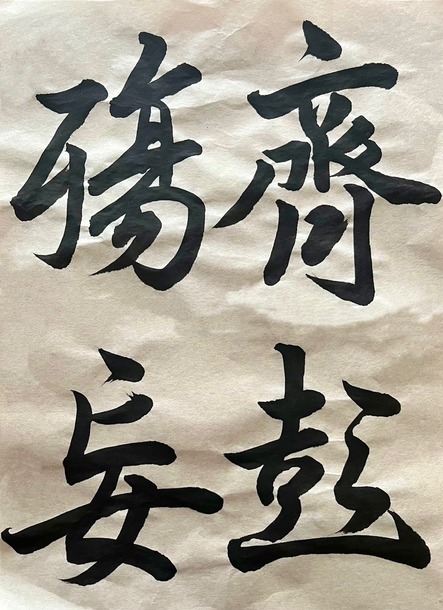 齊彭
殤妄